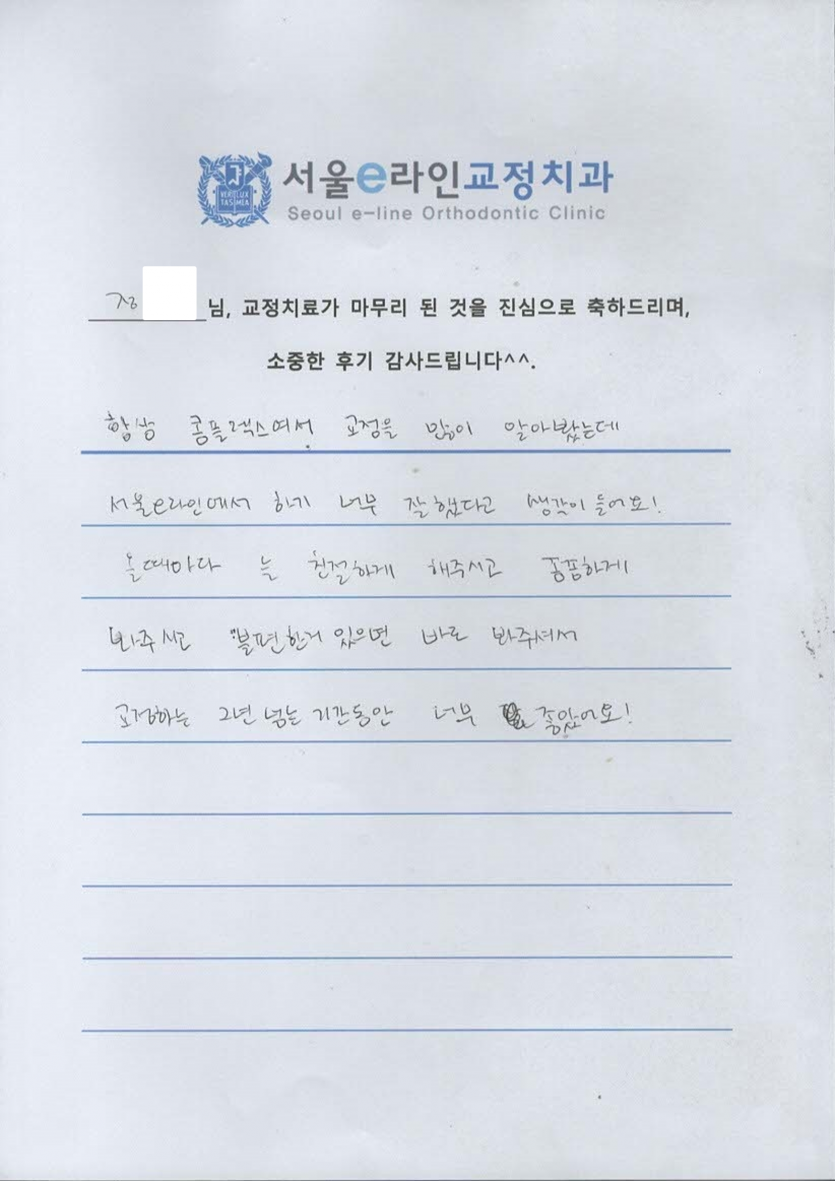 VERI LUX
TAS MEA
서울e라인교정치과
Seoul e-line Orthodontic Clinic
정 님, 교정치료가 마무리 된 것을 진심으로 축하드리며,
소중한 후기 감사드립니다^^.
항상 콤플렉스여서 교정을 많이 알아봤는데
서울e라인에서 하기 너무 잘했다고 생각이 들어요!
올때마다 늘 친절하게 해주시고 꼼꼼하게
봐주시고 불편한거 있으면 바로 봐주셔서
교정하는 2년 넘는 기간동안 너무 좋았어요!